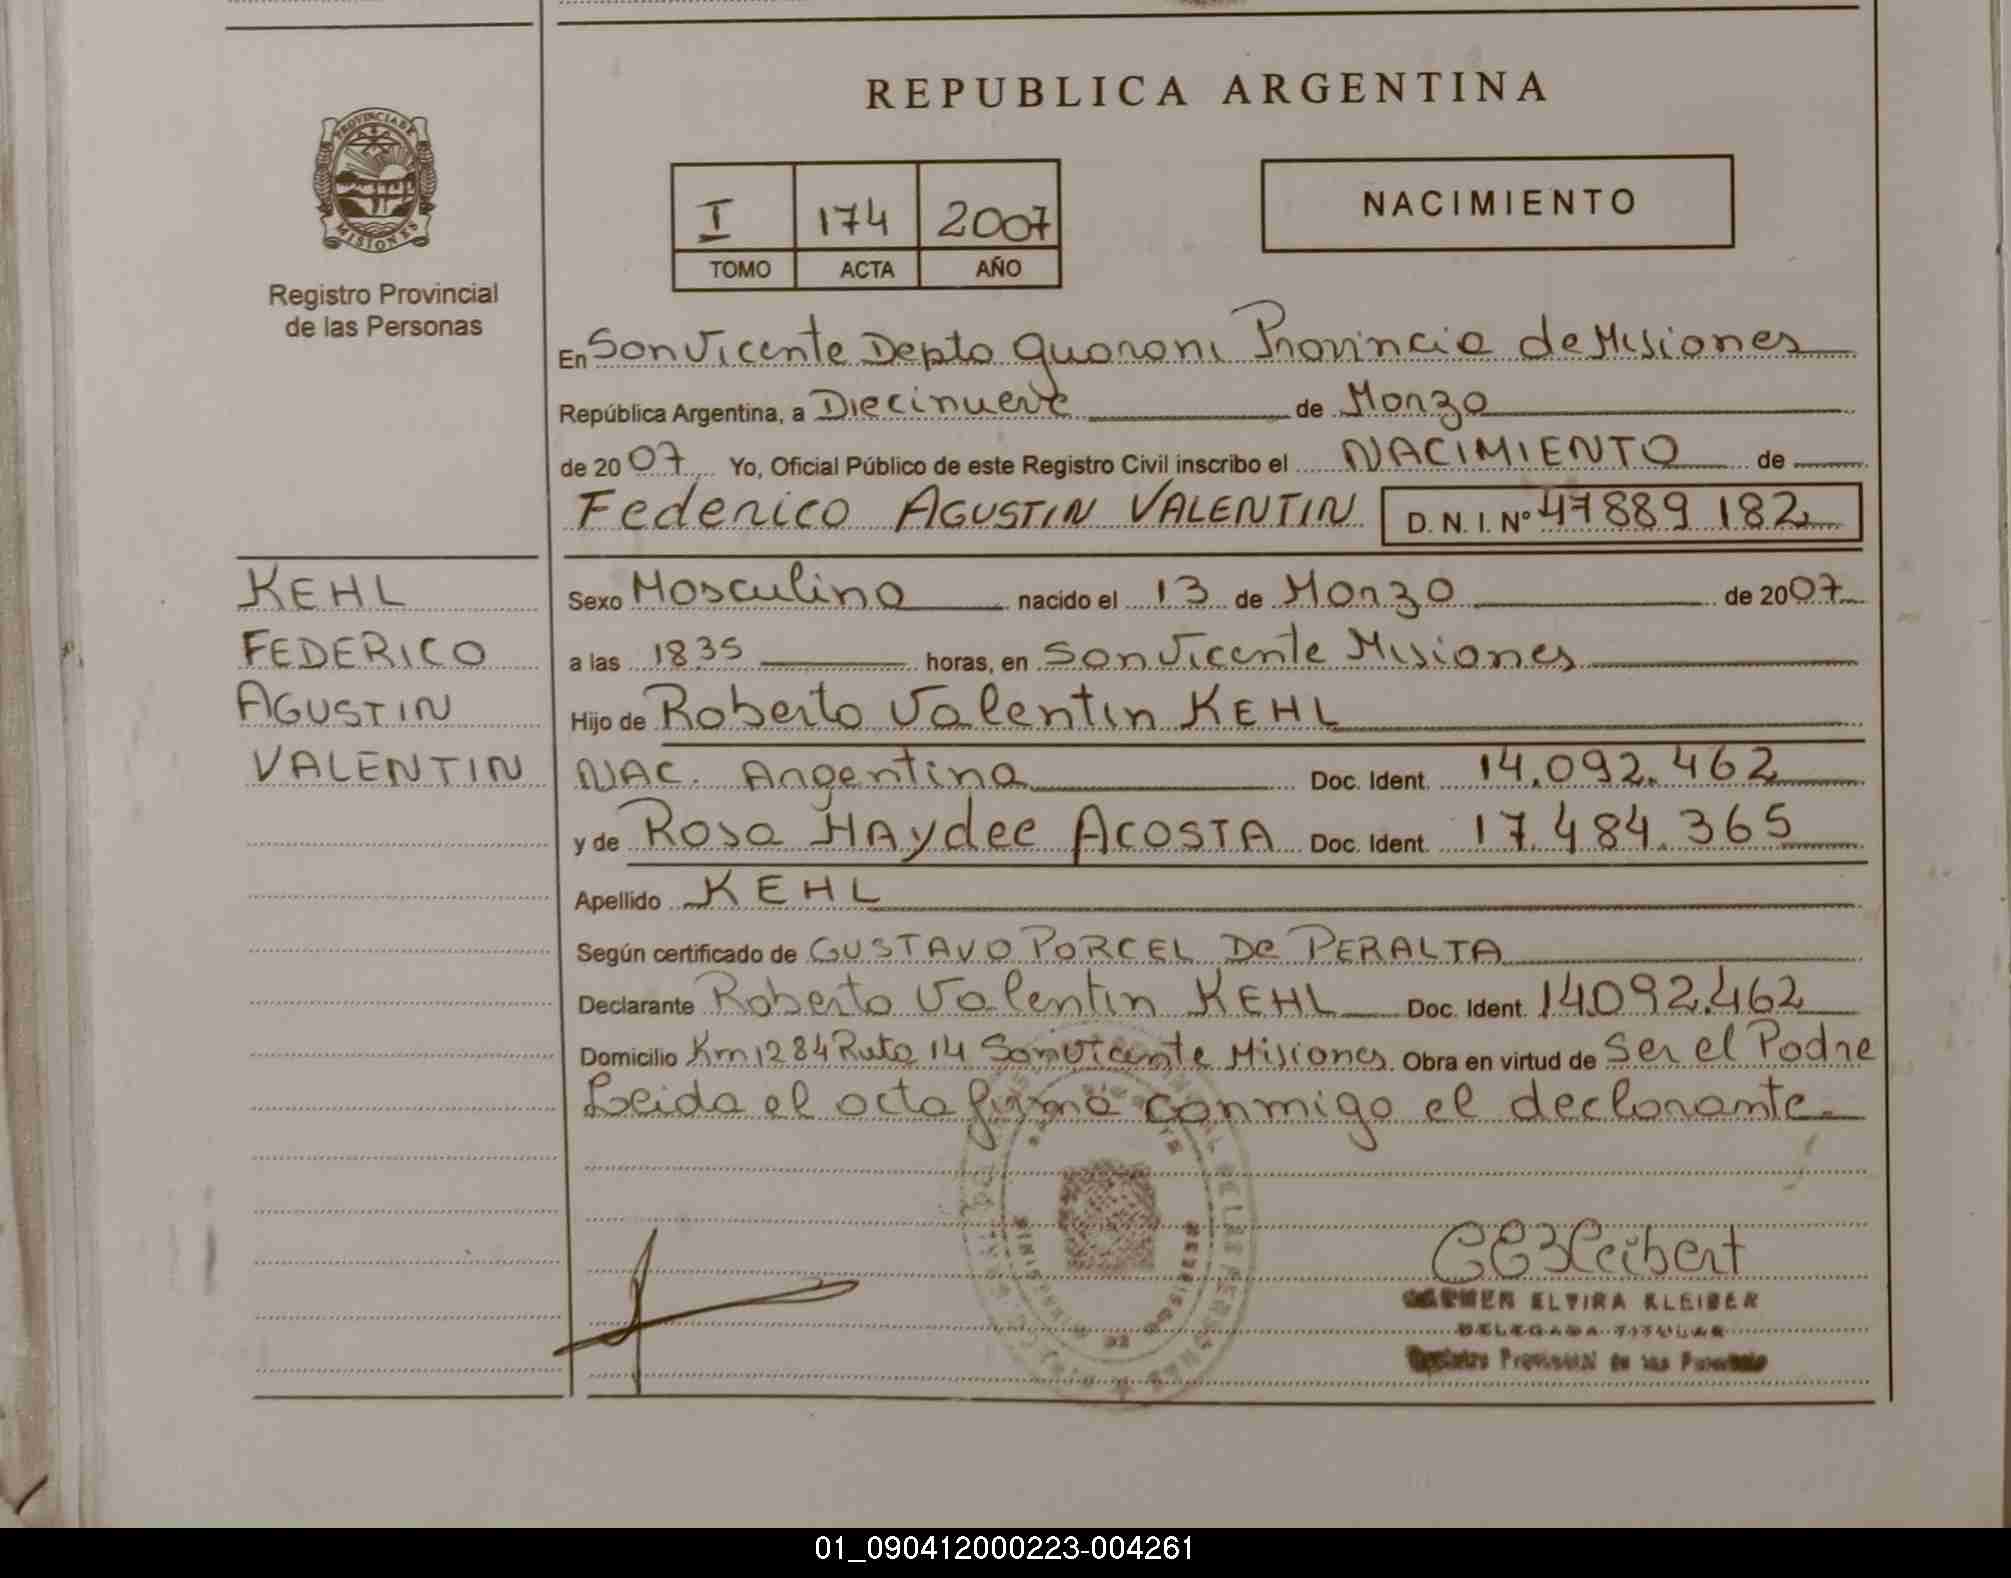 REPUBLICA ARGENTINA
PROVINCIA DE
MISIONES
Registro Provincial
de las Personas
I 174 2007
TOMO ACTA AÑO
NACIMIENTO
En San Vicente Depto Guarani Provincia de Misiones
República Argentina, a Diecinueve de Marzo
de 2007 Yo, Oficial Público de este Registro Civil inscribo el NACIMIENTO de
Federico AGUSTIN VALENTIN D.N.I. Nº 47889182
KEHL
FEDERICO
AGUSTIN
VALENTIN
Sexo Masculino nacido el 13 de Marzo de 2007
a las 1835 horas, en San Vicente Misiones
Hijo de Roberto Valentin KEHL
NAC. Argentina Doc. Ident. 14.092.462
y de Rosa HAydee ACOSTA Doc. Ident. 17.484.365
Apellido KEHL
Según certificado de GUSTAVO PORCEL De PERALTA
Declarante Roberto Valentin KEHL Doc. Ident. 14.092.462
Domicilio Km 1284 Ruta 14 San Vicente Misiones. Obra en virtud de Ser el Padre
Leida el acta firma conmigo el declarante.
CARMEN ELVIRA KLEIBER
DELEGADA TITULAR
Registro Provincial de las Personas
01_090412000223-004261